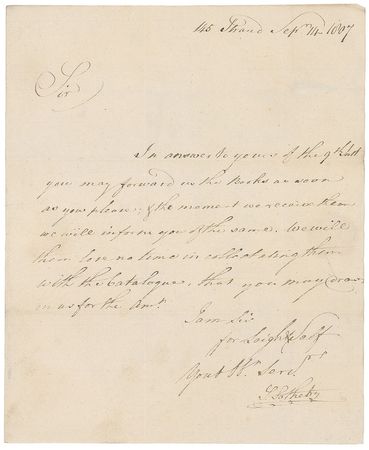 145 Strand Sepr 14 1807
Sir
In answer to yours of the 9th Inst
you may forward us the Books as soon
as you please, & the moment we receive them
we will inform you of the same. We will
then lose no time in collating them
with the Catalogue, that you may draw
on us for the Amt.
I am Sir
for Leigh & Self
Your Hl Servt
S Sotheby